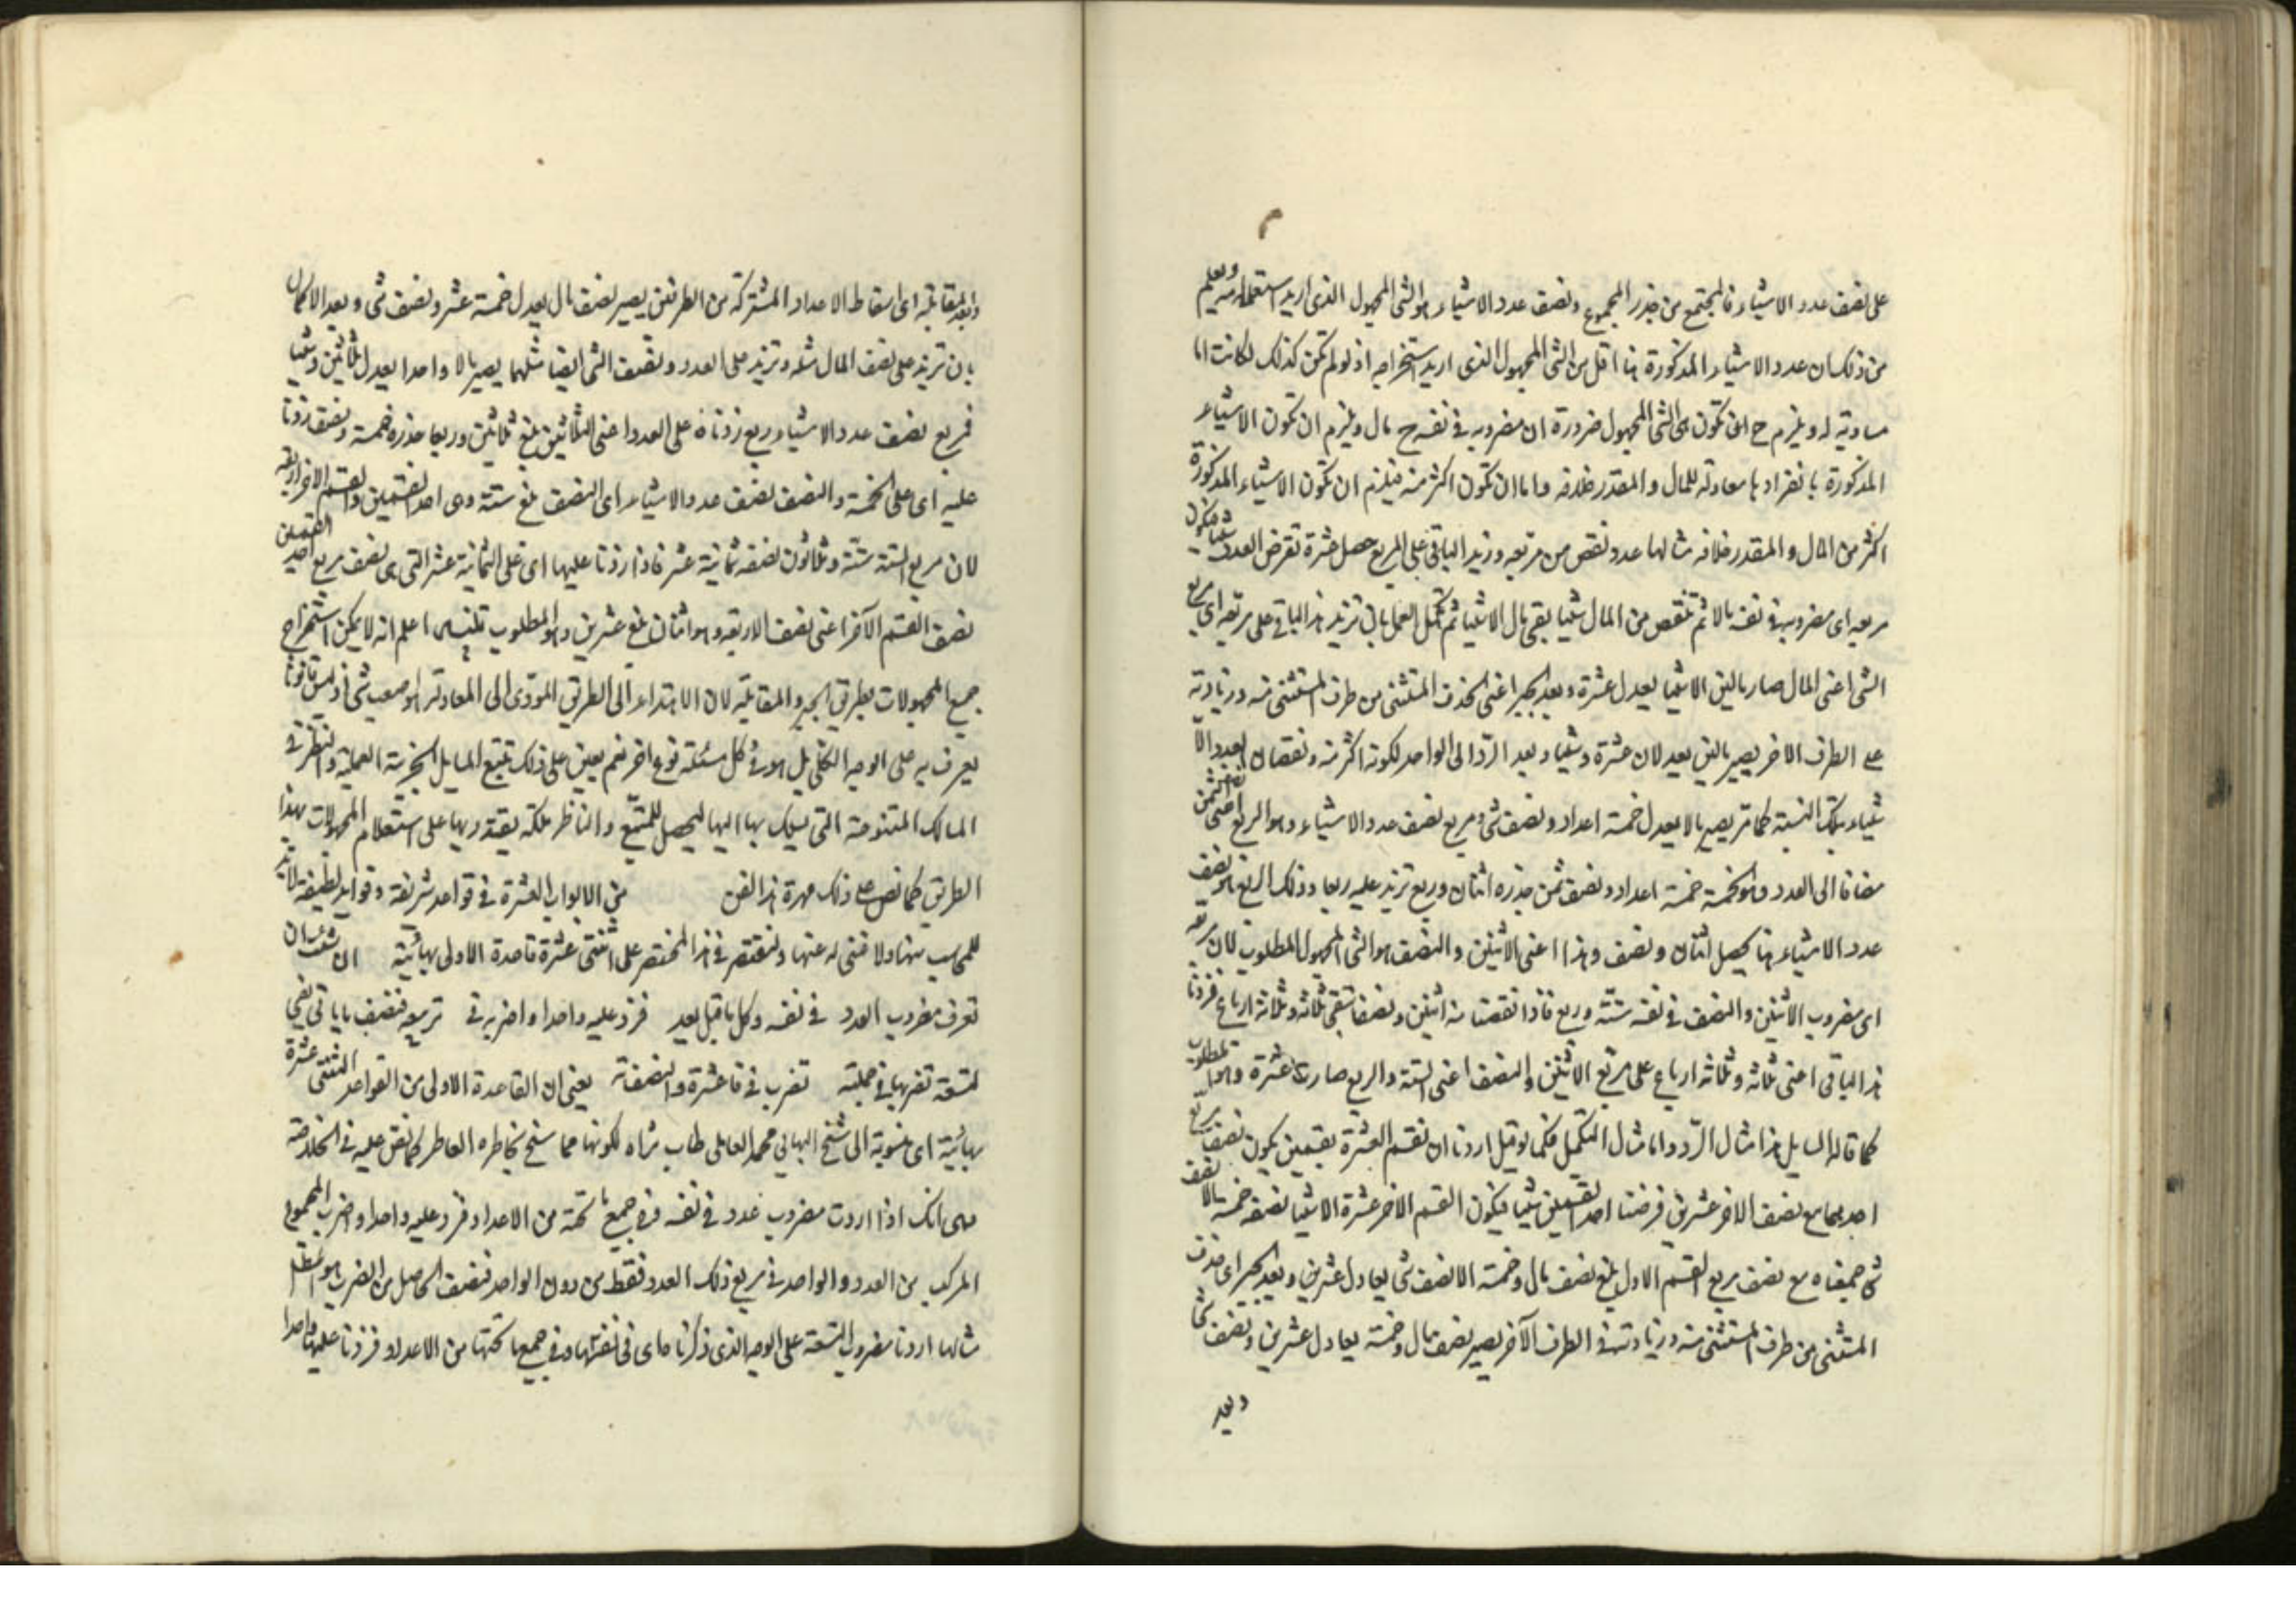 على نصف عدد الاشياء فالمجتمع من جذر المجموع ونصف عدد الاشياء هو الشئ المجهول الذى اريد استعلامه ويعلم
من ذلك ان عدد الاشياء المذكورة هنا اقل من الشئ المجهول الذى اريد استخراجه اذ لو لم تكن كذلك لكانت اما
مساوية له ويلزم ح ان تكون هى الشئ المجهول ضرورة ان مضروبه فى نفسه ح مال ويلزم ان تكون الاشياء
المذكورة بانفرادها معادلة للمال والمقدر خلافه واما ان تكون اكثر منه فيلزم ان تكون الاشياء المذكورة
اكثر من المال والمقدر خلافه مثالها عدد نقص من مربعه وزيد الباقى على المربع حصل عشرة نفرض العدد شيئا فيكون
مربعه اى مضروبه فى نفسه مالا ثم تنقص من المال شيئا يبقى مال الا شيئا ثم تكمل العمل بان تزيد هذا الباقى على مربعه اى مربع
الشئ اعنى المال صار مالين الا شيئا يعدل عشرة وبعد الجبر اعنى حذف المستثنى من طرف المستثنى منه وزيادته
على الطرف الاخر يصير مالين يعدلان عشرة وشيئا وبعد الرد الى الواحد لكونه اكثر منه ونقصان العدد والا
شياء بتلك النسبة كما مر يصير مالا يعدل خمسة اعداد ونصف شئ ومربع نصف عدد الاشياء وهو الربع اعنى نصف الثمن
مضافا الى العدد وهو الخمسة خمسة اعداد ونصف ثمن جذره اثنان وربع تزيد عليه ربعا وذلك الربع هو نصف
عدد الاشياء هنا يحصل اثنان ونصف وهذا اعنى الاثنين والنصف هو الشئ المجهول المطلوب لان مربعه
اى مضروب الاثنين والنصف فى نفسه ستة وربع فاذا نقصنا منه اثنين ونصفا تبقى ثلاثة وثلاثة ارباع فزدنا
هذا الباقى اعنى ثلاثة وثلاثة ارباع على مربع الاثنين والنصف اعنى الستة والربع صارت عشرة وهو المطلوب
كما قاله السايل هذا مثال الرد واما مثال التكميل فكما لو قيل اردنا ان نقسم العشرة بقسمين يكون نصف مربع
احدهما مع نصف الاخر عشرين فرضنا احد القسمين شيئا فيكون القسم الاخر عشرة الا شيئا نصفه خمسة الا نصف
شئ جمعناه مع نصف مربع القسم الاول بلغ نصف مال وخمسة الا نصف شئ يعادل عشرين وبعد الجبر اى حذف
المستثنى من طرف المستثنى منه وزيادته فى الطرف الآخر يصير نصف مال وخمسة يعادل عشرين ونصف شئ
وبعد
وبعد المقابلة اى اسقاط الاعداد المشتركة من الطرفين يصير نصف مال يعدل خمسة عشر ونصف شئ وبعد الاكمال
بان تزيد على نصف المال مثله وتزيد على العدد ونصف الشئ ايضا مثلهما يصير مالا واحدا يعدل ثلاثين وشيئا
فمربع نصف عدد الاشياء ربع زدناه على العدد اعنى الثلاثين بلغ ثلاثين وربعا جذره خمسة ونصف زدنا
عليه اى على الخمسة والنصف نصف عدد الاشياء اى النصف بلغ ستة وهى احد القسمين والقسم الاخر اربعة
لان مربع الستة ستة وثلاثون نصفه ثمانية عشر فاذا زدنا عليها اى على الثمانية عشر التى هى نصف مربع احد القسمين
نصف القسم الآخر اعنى نصف الاربعة وهو اثنان بلغ عشرين وهو المطلوب تنبيه اعلم انه لا يمكن استخراج
جميع المجهولات بطريق الجبر والمقابلة لان الاهتداء الى الطريق المؤدى الى المعادلة هو صعب شئ اذ ليس قانونا
يعرف به على الوجه الكلى بل هو فى كل مسئلة نوع اخر نعم يعين على ذلك تتبع المسايل الجزئية العملية والنظر فى
المسالك المتنوعة التى يسلك بها اليها ليحصل للمتتبع والناظر ملكة يقتدر بها على استعلام المجهولات بهذا
الطريق كما نص على ذلك مهرة هذا الفن من الابواب العشرة فى قواعد شريفة وفوايد لطيفة لا بد
للمحاسب منها ولا غنى له عنها ولنقتصر فى هذا المختصر على اثنتى عشرة قاعدة الاولى بهائية ان شئت ان
تعرف مضروب العدد فى نفسه وكل ما قبل بعد فزد عليه واحدا واضربه فى تربيعه فنصف ما ياتى يفى
لتسعة تضربها فى جملته تضرب فى فاعشرة وانصفاته يعنى ان القاعدة الاولى من القواعد الاثنتى عشرة
بهائية اى منسوبة الى شيخ البهائى محمد العاملى طاب ثراه لكونها مما سنح بخاطره العاطر كما نص عليه فى الخلاصة
وهى انك اذا اردت مضروب عدد فى نفسه وفى جميع ما تحته من الاعداد فزد عليه واحدا واضرب المجموع
المركب من العدد والواحد فى مربع ذلك العدد فقط من دون الواحد فنصف الحاصل من الضرب هو المطلوب
مثالها اردنا مضروب التسعة على الوجه الذى ذكرنا اى فى نفسها وفى جميع ما تحتها من الاعداد فزدنا عليها واحدا